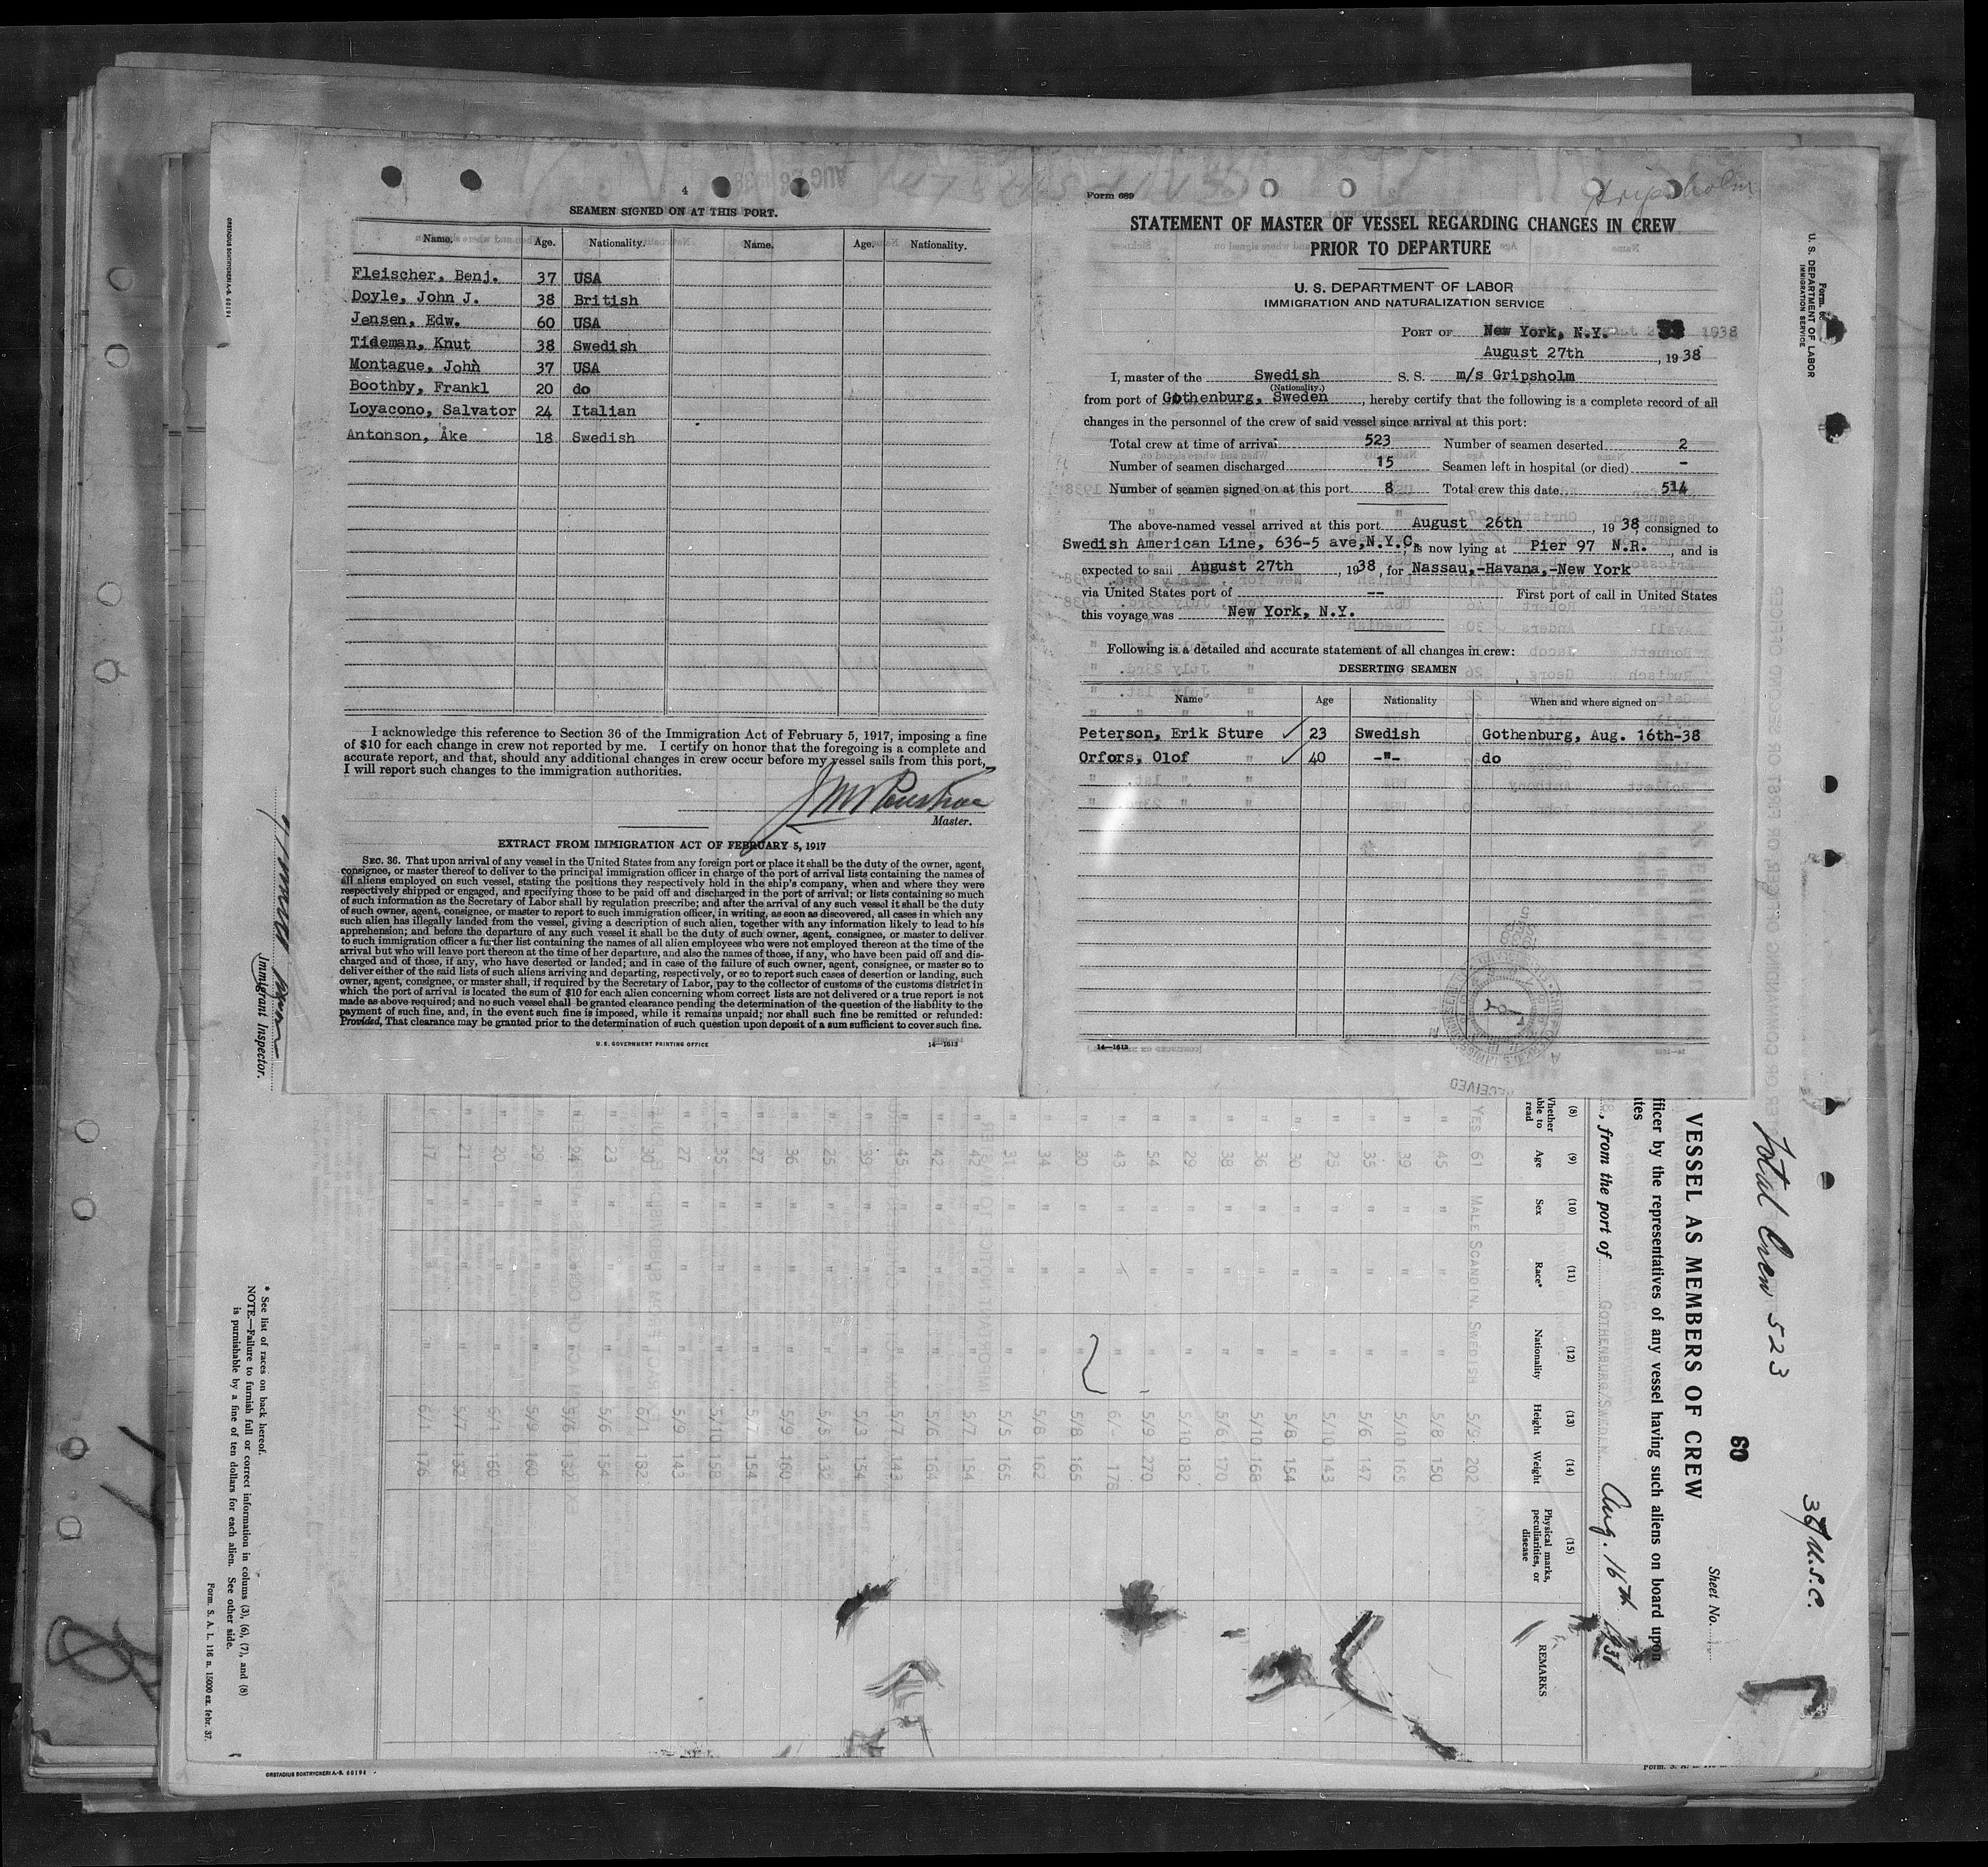 4
SEAMEN SIGNED ON AT THIS PORT.
Name. Age. Nationality. Name. Age. Nationality.
Fleischer, Benj. 37 USA
Doyle, John J. 38 British
Jensen, Edw. 60 USA
Tideman, Knut 38 Swedish
Montague, John 37 USA
Boothby, Frankl 20 do
Loyacono, Salvator 24 Italian
Antonson, Åke 18 Swedish
I acknowledge this reference to Section 36 of the Immigration Act of February 5, 1917, imposing a fine
of $10 for each change in crew not reported by me. I certify on honor that the foregoing is a complete and
accurate report, and that, should any additional changes in crew occur before my vessel sails from this port,
I will report such changes to the immigration authorities.
Master.
EXTRACT FROM IMMIGRATION ACT OF FEBRUARY 5, 1917
SEC. 36. That upon arrival of any vessel in the United States from any foreign port or place it shall be the duty of the owner, agent,
consignee, or master thereof to deliver to the principal immigration officer in charge of the port of arrival lists containing the names of
all aliens employed on such vessel, stating the positions they respectively hold in the ship's company, when and where they were
respectively shipped or engaged, and specifying those to be paid off and discharged in the port of arrival; or lists containing so much
of such information as the Secretary of Labor shall by regulation prescribe; and after the arrival of any such vessel it shall be the duty
of such owner, agent, consignee, or master to report to such immigration officer, in writing, as soon as discovered, all cases in which any
such alien has illegally landed from the vessel, giving a description of such alien, together with any information likely to lead to his
apprehension; and before the departure of any such vessel it shall be the duty of such owner, agent, consignee, or master to deliver
to such immigration officer a further list containing the names of all alien employees who were not employed thereon at the time of the
arrival but who will leave port thereon at the time of her departure, and also the names of those, if any, who have been paid off and dis-
charged and of those, if any, who have deserted or landed; and in case of the failure of such owner, agent, consignee, or master so to
deliver either of the said lists of such aliens arriving and departing, respectively, or so to report such cases of desertion or landing, such
owner, agent, consignee, or master shall, if required by the Secretary of Labor, pay to the collector of customs of the customs district in
which the port of arrival is located the sum of $10 for each alien concerning whom correct lists are not delivered or a true report is not
made as above required; and no such vessel shall be granted clearance pending the determination of the question of the liability to the
payment of such fine, and, in the event such fine is imposed, while it remains unpaid; nor shall such fine be remitted or refunded:
Provided, That clearance may be granted prior to the determination of such question upon deposit of a sum sufficient to cover such fine.
U. S. GOVERNMENT PRINTING OFFICE 14—1613
Form 689
Gripsholm
STATEMENT OF MASTER OF VESSEL REGARDING CHANGES IN CREW
PRIOR TO DEPARTURE
U. S. DEPARTMENT OF LABOR
IMMIGRATION AND NATURALIZATION SERVICE
PORT OF New York, N.Y. 1938
August 27th, 1938
I, master of the Swedish S. S. m/s Gripsholm
(Nationality.)
from port of Gothenburg, Sweden, hereby certify that the following is a complete record of all
changes in the personnel of the crew of said vessel since arrival at this port:
Total crew at time of arrival 523 Number of seamen deserted 2
Number of seamen discharged 15 Seamen left in hospital (or died) -
Number of seamen signed on at this port 8 Total crew this date 514
The above-named vessel arrived at this port August 26th, 1938, consigned to
Swedish American Line, 636-5 ave,N.Y.C., is now lying at Pier 97 N.R., and is
expected to sail August 27th, 1938, for Nassau,-Havana,-New York
via United States port of -- First port of call in United States
this voyage was New York, N.Y.
Following is a detailed and accurate statement of all changes in crew:
DESERTING SEAMEN
Name Age Nationality When and where signed on
Peterson, Erik Sture ✓ 23 Swedish Gothenburg, Aug. 16th-38
Orfors, Olof " ✓ 40 -"- do
14—1613
U. S. DEPARTMENT OF LABOR
IMMIGRATION SERVICE
Total Crew 523
38 U.S.C.
60
Sheet No.
VESSEL AS MEMBERS OF CREW
fficer by the representatives of any vessel having such aliens on board upon
, from the port of GOTHENBURG/SWEDEN Aug. 16th 1938
(8) (9) (10) (11) (12) (13) (14) (15)
Whether able to read Age Sex Race* Nationality Height Weight Physical marks, peculiarities, or disease REMARKS
YES 61 MALE SCANDIN. SWEDISH 5/9 202
" 45 " " " 5/8 150
" 39 " " " 5/10 165
" 35 " " " 5/6 147
" 25 " " " 5/10 143
" 30 " " " 5/8 154
" 36 " " " 5/10 168
" 38 " " " 5/6 170
" 29 " " " 5/10 182
" 54 " " " 5/9 270
" 43 " " " 6/- 176
" 30 " " " 5/8 165
" 34 " " " 5/8 162
" 31 " " " 5/5 165
" 42 " " " 5/7 154
" 42 " " " 5/6 164
" 45 " " " 5/7 143
" 39 " " " 5/3 154
" 25 " " " 5/5 132
" 36 " " " 5/9 160
" 27 " " " 5/7 154
" 35 " " " 5/10 158
" 27 " " " 5/9 143
" 30 " " " 6/1 182
" 23 " " " 5/6 154
" 24 " " " 5/6 132
" 29 " " " 5/9 160
" 20 " " " 6/1 160
" 21 " " " 5/7 132
" 17 " " " 6/1 176
Immigrant Inspector.
* See list of races on back hereof.
NOTE.—Failure to furnish full or correct information in colums (3), (6), (7), and (8)
is punishable by a fine of ten dollars for each alien. See other side.
Form. S. A. L. 116 n. 15000 ex. febr. 37.
ORSTADIUS BOKTRYCKERI A.-B. 60194